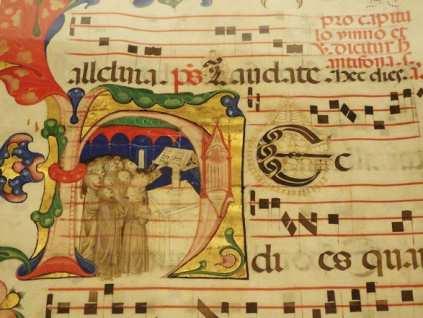 Pro capitu
lo ymno et
℣. dicitur h
antifona.
alleluia. ps Laudate. Hec dies.
H Ec
di es qua